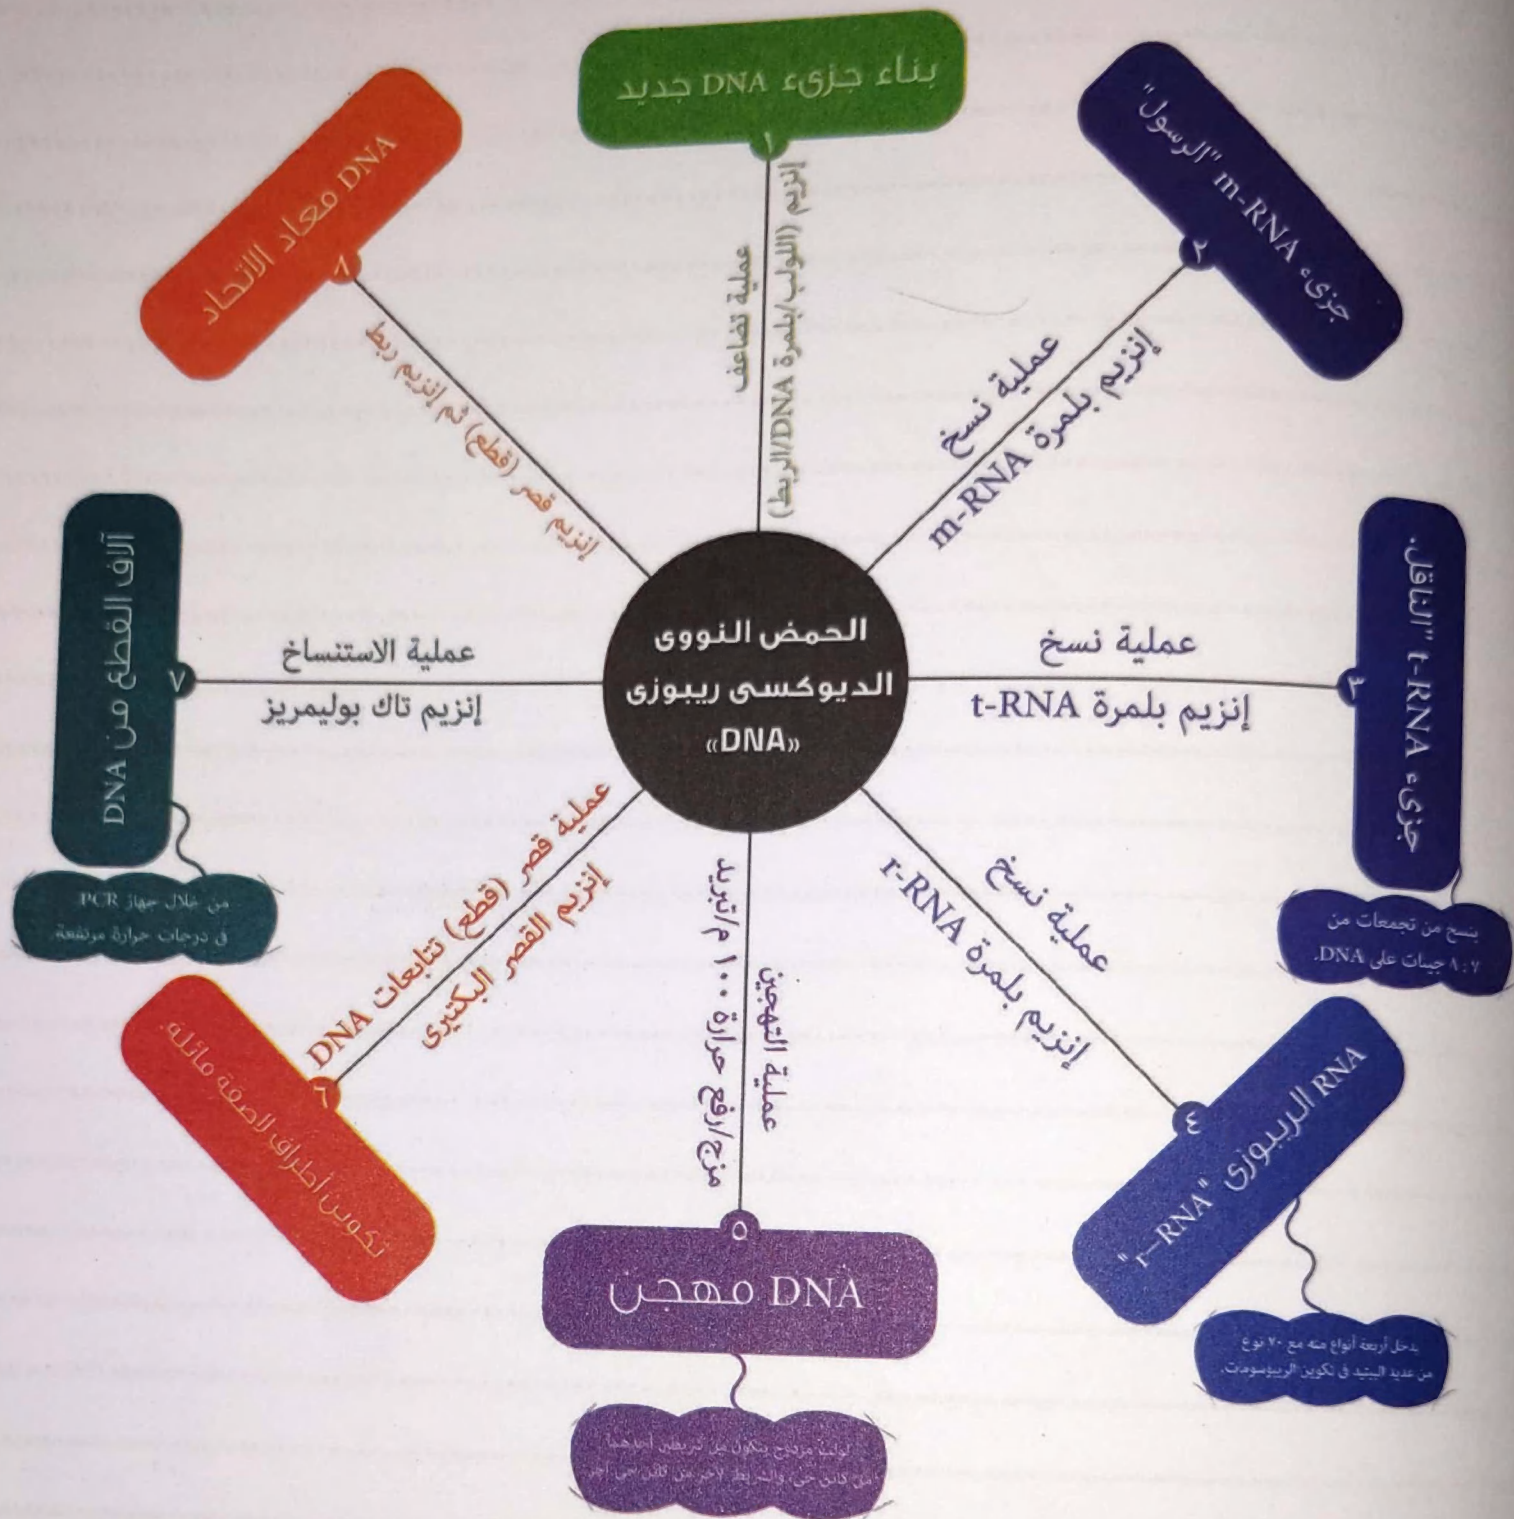 الحمض النووى
الديوكسى ريبوزى
«DNA»
بناء جزىء DNA جديد
١
عملية تضاعف
إنزيم (اللولب/بلمرة DNA/الربط)
جزىء m-RNA "الرسول"
٢
عملية نسخ
إنزيم بلمرة m-RNA
جزىء t-RNA "الناقل.
٣
عملية نسخ
إنزيم بلمرة t-RNA
ينسخ من تجمعات من
٧ : ٨ جينات على DNA.
RNA الريبوزى "r-RNA"
٤
عملية نسخ
إنزيم بلمرة r-RNA
يدخل أربعة أنواع منه مع ٧٠ نوع
من عديد الببتيد فى تكوين الريبوسومات.
DNA مهجن
٥
عملية التهجين
مزج/رفع حرارة ١٠٠ م/تبريد
لولب مزدوج يتكون من شريطين أحدهما
من كائن حى، والشريط الآخر من كائن حى آخر
تكوين أطراف لاصقة مائلة.
٦
عملية قصر (قطع) تتابعات DNA
إنزيم القصر البكتيرى
آلاف القطع من DNA
٧
عملية الاستنساخ
إنزيم تاك بوليمريز
من خلال جهاز PCR
فى درجات حرارة مرتفعة.
DNA معاد الاتحاد
٨
إنزيم قصر (قطع) ثم إنزيم ربط